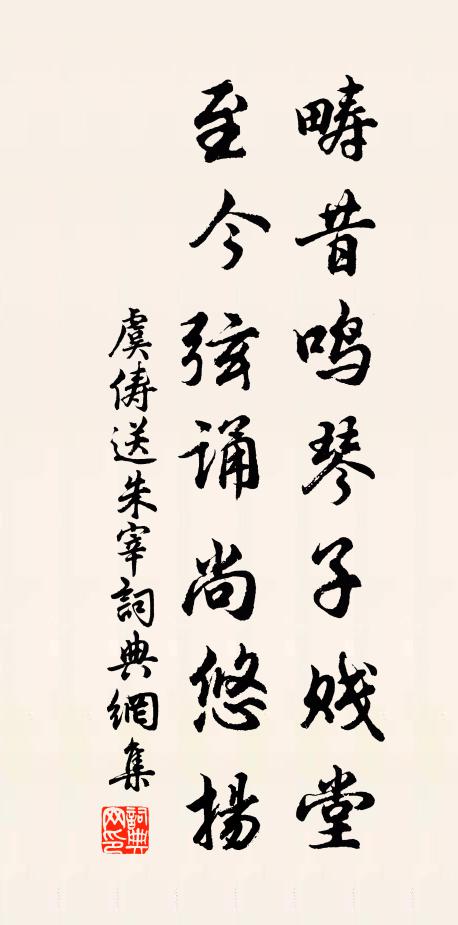 畴昔鸣琴子贱堂
至今弦诵尚悠扬
虞俦送朱宰詞典網集
詞典網印